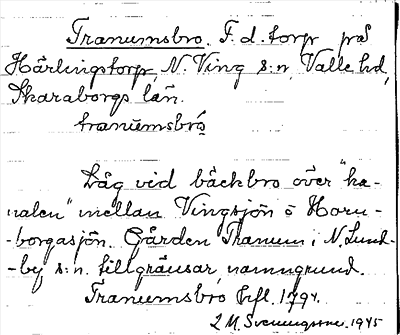 Tranumsbro. F.d. torp på
Härlingstorp, N. Ving s:n, Valle hd,
Skaraborgs län.
tranumsbró
Låg vid bäckbro över "ka-
nalen" mellan Vingsjön o Horn-
-borgasjön. Gården Tranum i N. Lund-
-by s:n tillgränsar, namngrund.
Tranumsbro Hfl. 1794.
1945